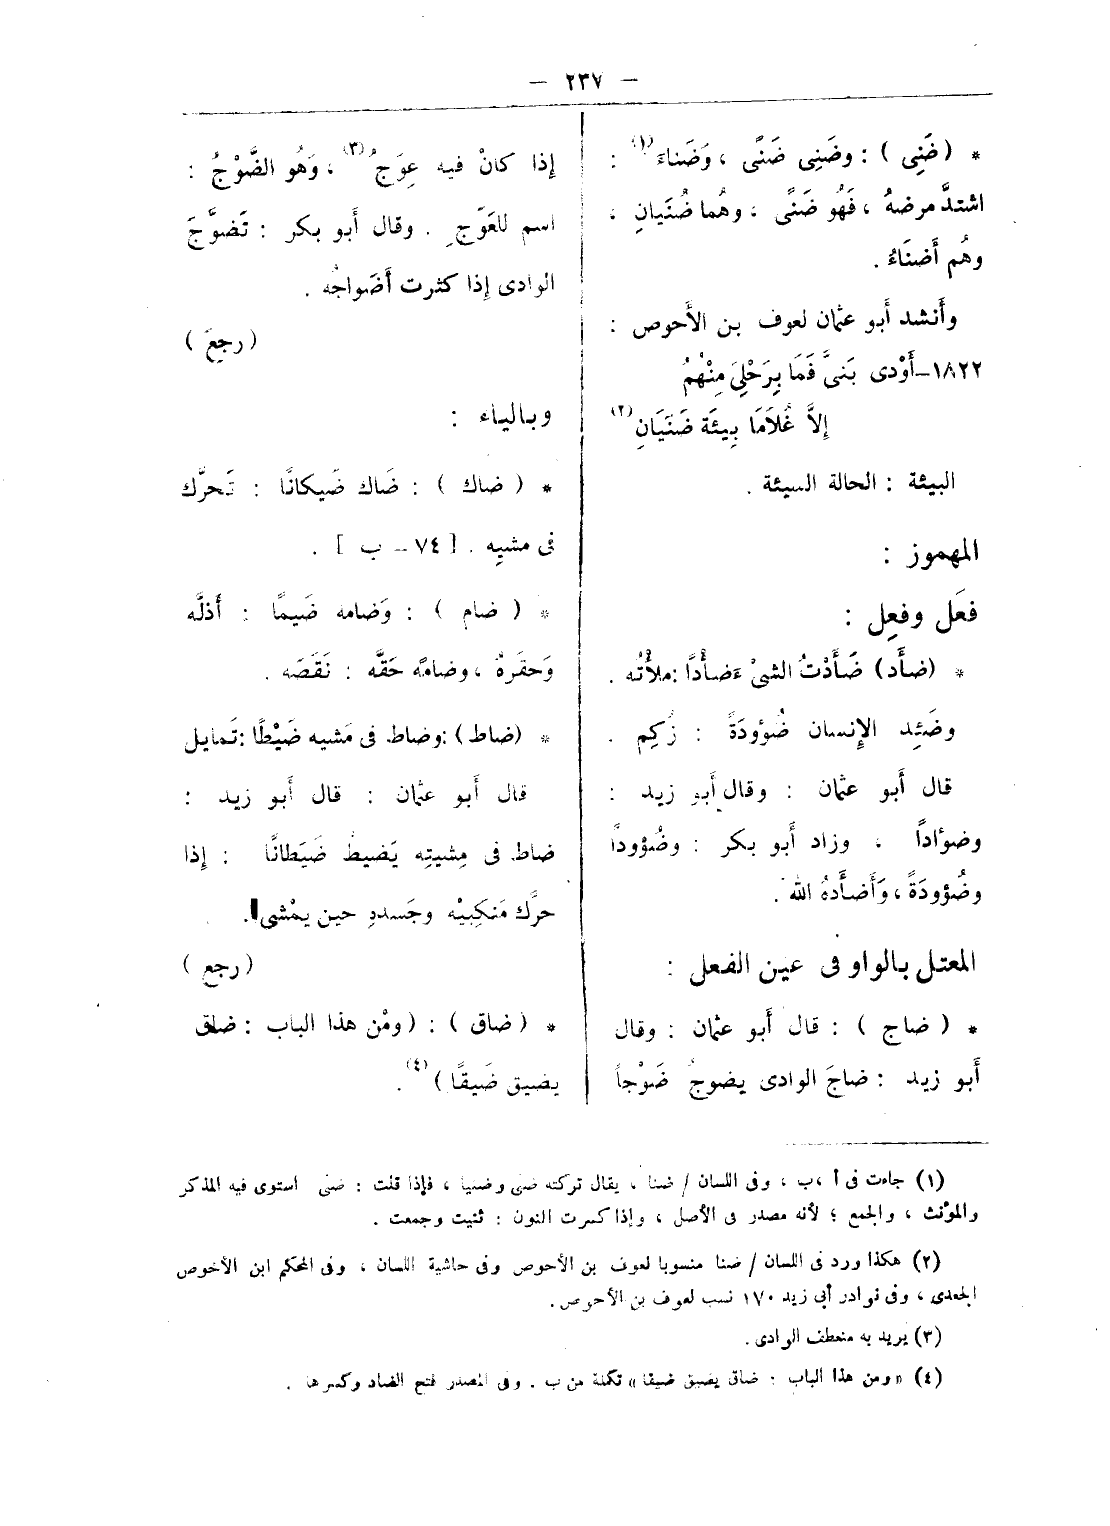 — ٢٣٧ —
* ( ضَنِى ) : وضَنِى ضَنًى ، وَضَناءَ (١) :
اشتدَّ مرضهُ ، فَهُو ضَنًى ، وهُما ضُنَيانِ ،
وهُم أَضنَاءُ .
وأَنشد أَبو عثمان لعوف بن الأَحوص :
١٨٢٢ـ أَوْدى بَنىَّ فَمَا بِرَحْلِىَ مِنْهُمُ
إِلاَّ غُلاَمَا بِيئَة ضَنَيَانِ (٢)
البيئة : الحالة السيئة .
المهموز :
فعَل وفعِل :
* (ضأَد) ضَأَدْتُ الشىْءَ ضأْدًا : ملأْتُه .
وضَئِد الإِنسان ضُؤودَةً : زُكِم .
قال أَبو عثمان : وقال أَبو زيد :
وضوأداً ، وزاد أَبو بكر : وضُؤوداً
وضُؤودَةً ، وَأَضأَدهُ الله .
المعتل بالواو فى عين الفعل :
* ( ضاج ) : قال أَبو عثمان : وقال
أَبو زيد : ضاجَ الوادى يضوجُ ضَوْجاً
إذا كانْ فيه عِوَجٌ (٣) ، وَهُو الضَّوْجُ :
اسم للعَوَجِ . وقال أَبو بكر : تَضوَّجَ
الوادى إِذا كثرت أَضَواجُه .
( رجع )
وبالياء :
* ( ضاك ) : ضَاك ضَيكانًا : تَحرَّك
فى مشيِه . [ ٧٤ ـ ب ] .
* ( ضام ) : وَضامه ضَيمًا : أَذلَّه
وَحقَرهُ ، وضامَه حَقَّه : نَقَصَه .
* (ضاط) : وضاط فى مَشيه ضَيْطًا : تَمايل
قال أَبو عثمان : قال أَبو زيد :
ضاط فى مِشيتِه يَضيطُ ضَيَطانًا : إِذا
حرَّك مَنكِبيْه وجَسدهِ حين يمْشى .
( رجع )
* ( ضاق ) : ( ومْن هذا الباب : ضاق
يضيق ضَيقًا ) (٤) .
(١) جاءت فى أ ، ب ، وفى اللسان / ضنا ، يقال تركته ضنى وضنيا ، فإذا قلت : ضنى استوى فيه المذكر
والمؤنث ، والجمع ؛ لأنه مصدر فى الأصل ، وإذا كسرت النون : ثنيت وجمعت .
(٢) هكذا ورد فى اللسان / ضنا منسوبا لعوف بن الأحوص وفى حاشية اللسان ، وفى المحكم ابن الأخوص
الجعدى ، وفى نوادر أبى زيد ١٧٠ نسب لعوف بن الأحوص .
(٣) يريد به منعطف الوادى .
(٤) « ومن هذا الباب : ضاق يضيق ضيقا » تكملة من ب . وفى المصدر فتح الضاد وكسرها .